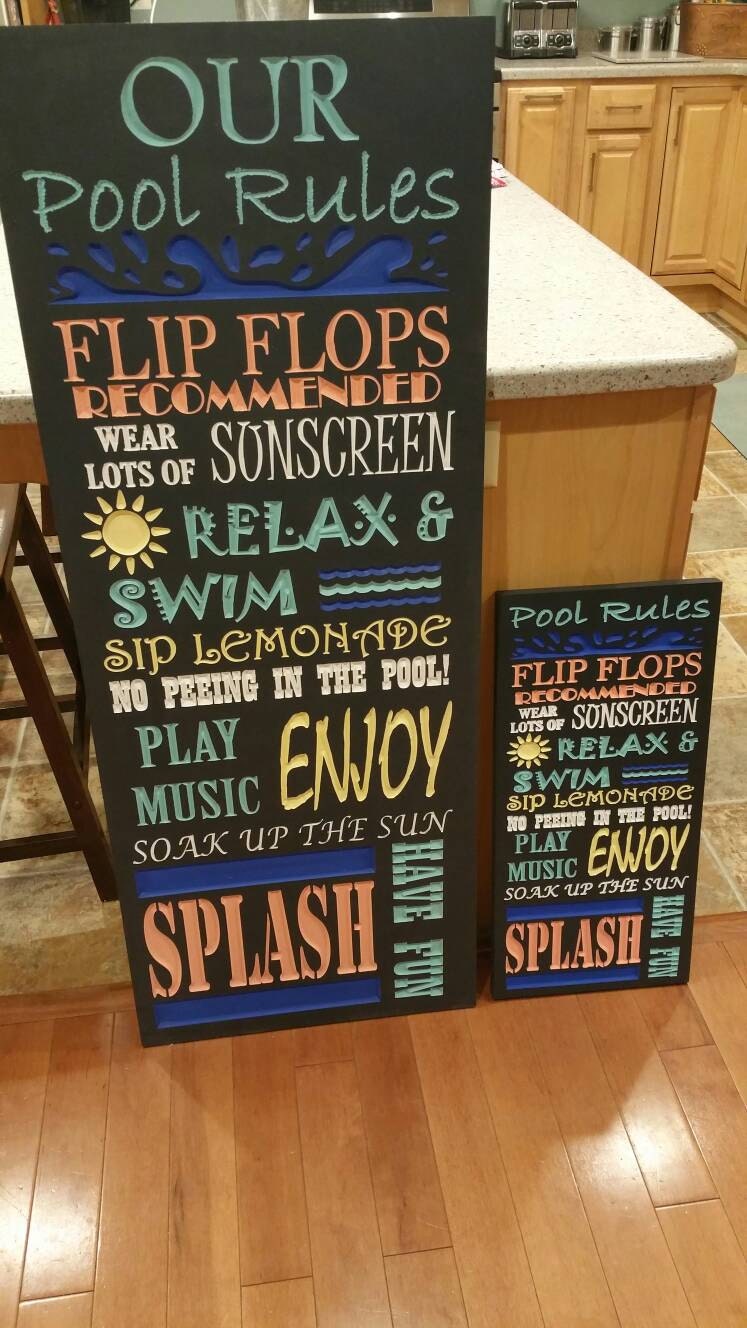 OUR
Pool Rules
FLIP FLOPS
RECOMMENDED
WEAR
LOTS OF SUNSCREEN
RELAX &
SWIM
SIP LEMONADE
NO PEEING IN THE POOL!
PLAY
MUSIC ENJOY
SOAK UP THE SUN
SPLASH
HAVE FUN
Pool Rules
FLIP FLOPS
RECOMMENDED
WEAR
LOTS OF SUNSCREEN
RELAX &
SWIM
SIP LEMONADE
NO PEEING IN THE POOL!
PLAY
MUSIC ENJOY
SOAK UP THE SUN
SPLASH
HAVE FUN